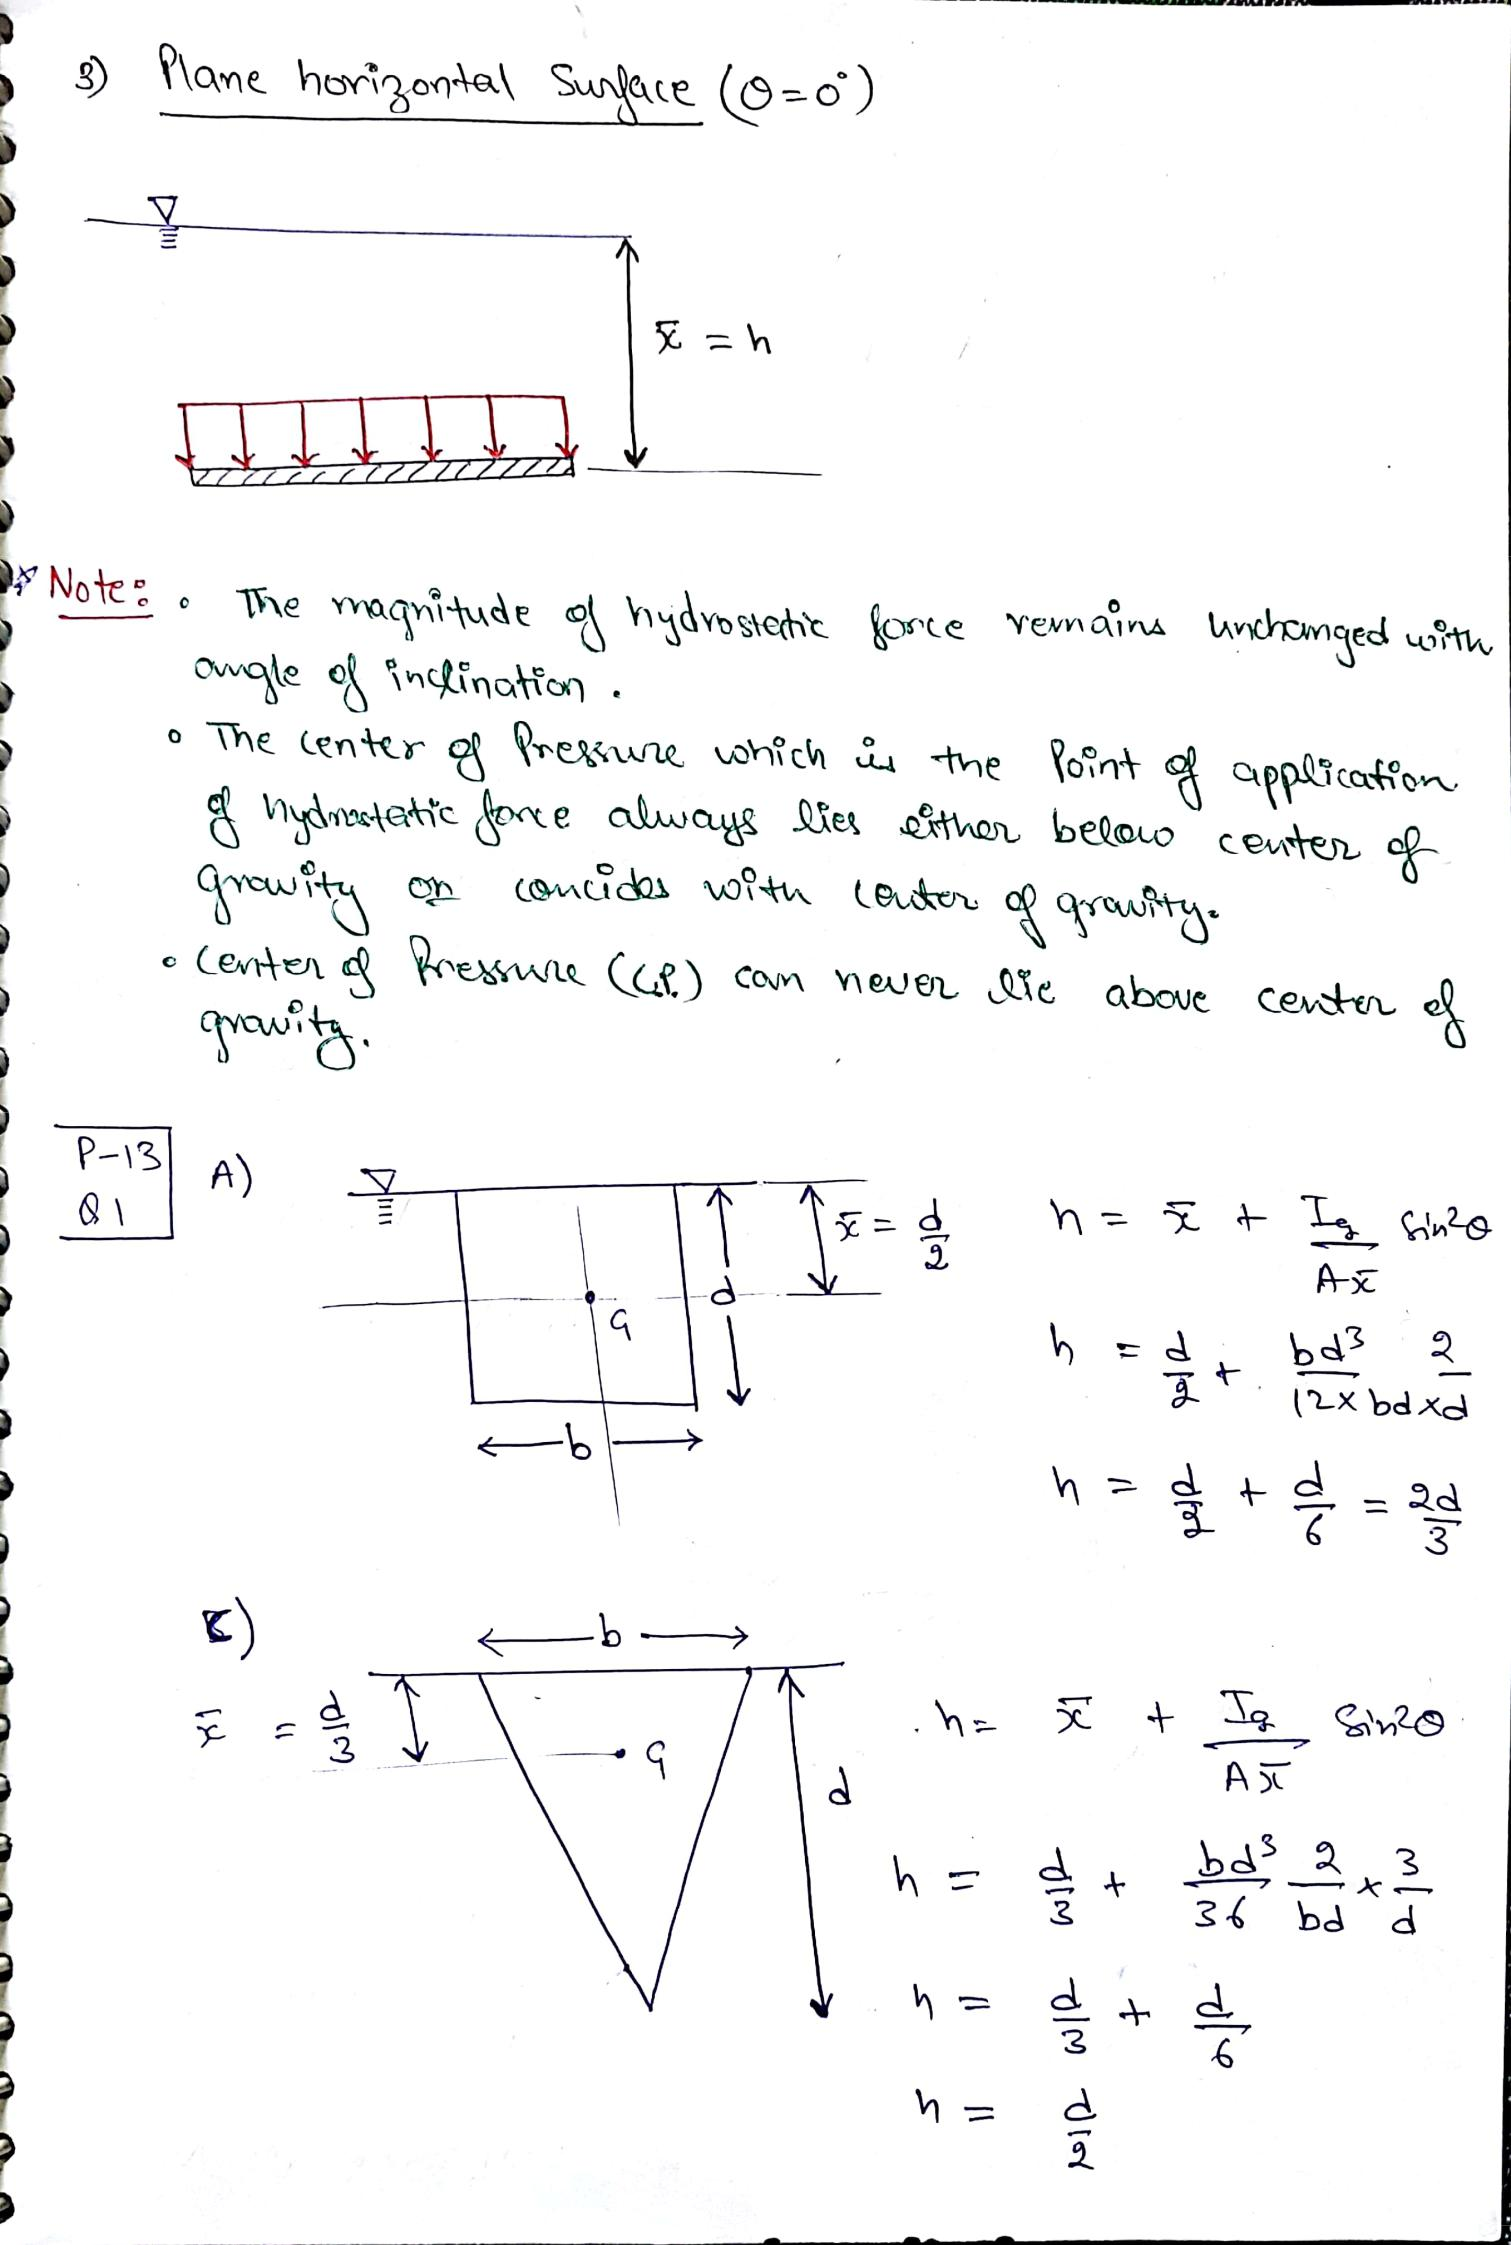 3) Plane horizontal Surface (θ=0°)
x̄ = h
* Note: • The magnitude of hydrostatic force remains unchanged with
angle of inclination.
• The center of Pressure which is the Point of application
of hydrostatic force always lies either below center of
gravity or concides with center of gravity.
• Center of Pressure (C.P.) can never lie above center of
gravity.
P-13
Q1
A)
x̄ = d/2
d
G
b
h = x̄ + Ig/Ax̄ Sin²θ
h = d/2 + bd³/12×bd×d 2
h = d/2 + d/6 = 2d/3
C)
b
x̄ = d/3
G
d
h = x̄ + Ig/Ax̄ Sin²θ
h = d/3 + bd³/36 2/bd × 3/d
h = d/3 + d/6
h = d/2